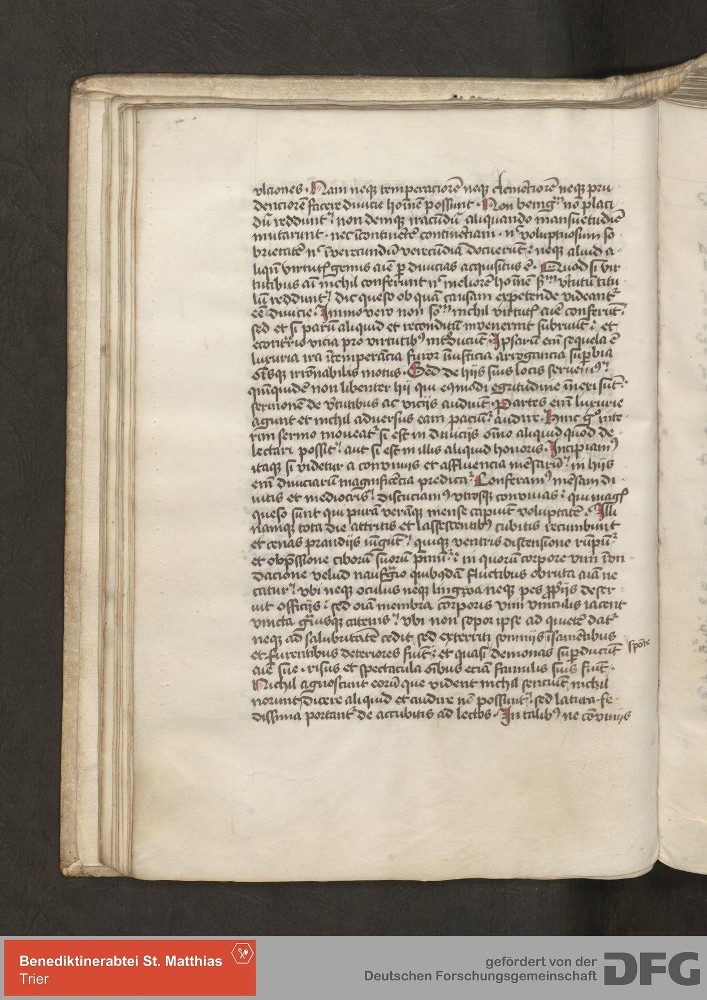 vlciones. Nam neq; temperaciorē neq; clemēciorē neq; pru
denciorē facere diuicie hoīnem possunt. Non benig͛ nō placi
dū reddunt non deniq; iracūdū aliquando mansuetudiē
mutarunt. nec īcontinētē continēciam. nͨ voluptuosum so
brietatē nͨ īverecundū verecūdiā docuerūt neq; aliud a
liqđ virtutꝭ genus aīe ꝑ diuicias acquisitus ē. Quod si vir
tutibus aū nichil conferunt nͨ meliorē hoīnem vtutū titu
lū reddunt dic queso ob quā causam expetende videantʳ
eē diuicie. Immo vero non nichil virtutꝭ aīe conferūt
sed et si parū aliquid et reconditū invenerint subruūt et
econtrͣrio vicia pro virtutibꝫ introducūt. Ipsarū em̄ sequela ē
luxuria ira ītemperācia furor iniusticia arrogancia suꝑbia
oīsq; irrōnabilis motus. Sed de hijs suis locis
qm̄quidē non libenter hij qui egritudine
sermonem de vtutibus ac vicijs audiūt. Partes em̄ luxurie
agunt et nichil adversus eam paciūtʳ audire. Hinc gͦ inte
rim sermo moueatʳ si est in diuicijs oīno aliquid quod de
lectari possit aut si est in illis aliquid honoris. Incipiamꝰ
itaq; si videtur a conviuijs et affluencia mēsarū in hijs
em̄ diuiciarū magnificēcia predicatʳ. Conferamꝰ mēsam di
uitis et mediocris discuciamꝰ vtrosq; convivas qui magꝭ
queso sunt qui purā verāq; mense capiūt voluptatē. Illi
namq; tota die attritis et lassescentibꝫ cubitis recumbunt
et cenas prandijs iūgūt quiq; ventris distensione rūpūtʳ
et obpͥssione ciborū suorū in quorū corpore vini īvn-
dacione velud naufrͣgio quibusdā fluctibus obruta aīa ne
catur vbi neq; oculus neq; lingwa neq; pes ꝓprijs deser-
uit officijs sed oīa membra corporis vini vinculis iacent
vincta grͣuiusq; catenis vbi non sopor ipse ad quietē datʳ
neq; ad salubritatē cedit sed exterriti somnijs īsanētibus
et furentibus deteriores fiūt et quasi demonas suꝑducūt
aīe sue. risus et spectacula oībus eciā famulis suis fiūt.
Nichil agnoscunt eorū que vident nichil senciūt nichil
norunt dicere aliquid et audire nō possunt sed latura fe-
dissima portantʳ de accubitis ad lectos. In talibꝫ ne cōviuijs
spōte
Benediktinerabtei St. Matthias
Trier
gefördert von der
Deutschen Forschungsgemeinschaft
DFG